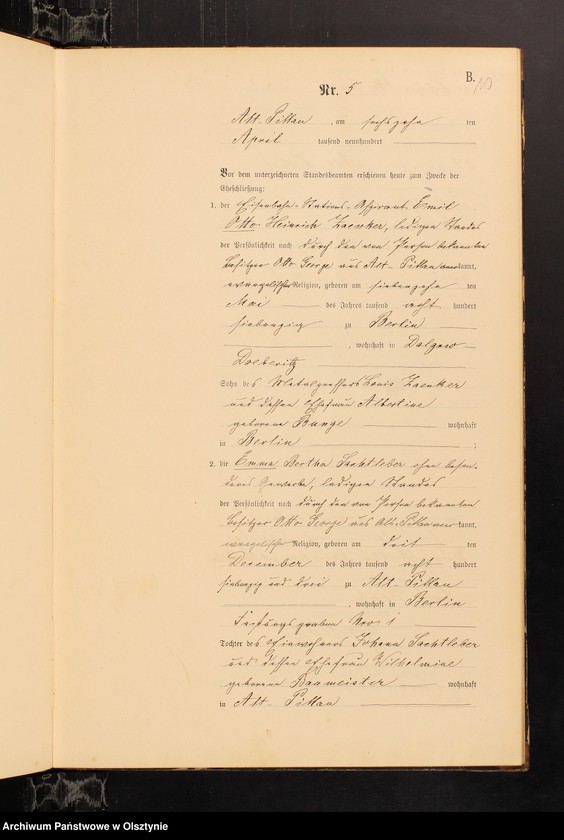 B.
10
Nr. 5
Alt Pillau, am sechszehn ten
April tausend neunhundert
Vor dem unterzeichneten Standesbeamten erschienen heute zum Zwecke der
Eheschließung:
1. der Eisenbahn-Stations-Aspirant Emil
Otto Heinrich Zaenker, ledigen Standes
der Persönlichkeit nach durch den von Person bekannten
Besitzer Otto George aus Alt-Pillau kannt,
evangelischer Religion, geboren am siebenzehn ten
Mai des Jahres tausend acht hundert
siebenzig zu Berlin
, wohnhaft in Dalgow-
Doeberitz
Sohn des Metallgiessers Louis Zaenker
und dessen Ehefrau Albertine
geborene Bunge wohnhaft
in Berlin ;
2. die Emma Bertha Sachtleber ohne beson-
deres Gewerbe, ledigen Standes
der Persönlichkeit nach durch den von Person bekannten
Besitzer Otto George aus Alt-Pillau kannt,
evangelischer Religion, geboren am dritt ten
Dezember des Jahres tausend acht hundert
siebenzig und drei zu Alt-Pillau
, wohnhaft in Berlin
Festungsgraben Nro 1
Tochter des Einwohners Johann Sachtleber
und dessen Ehefrau Wilhelmine
geborene Baumeister wohnhaft
in Alt-Pillau
Archiwum Państwowe w Olsztynie